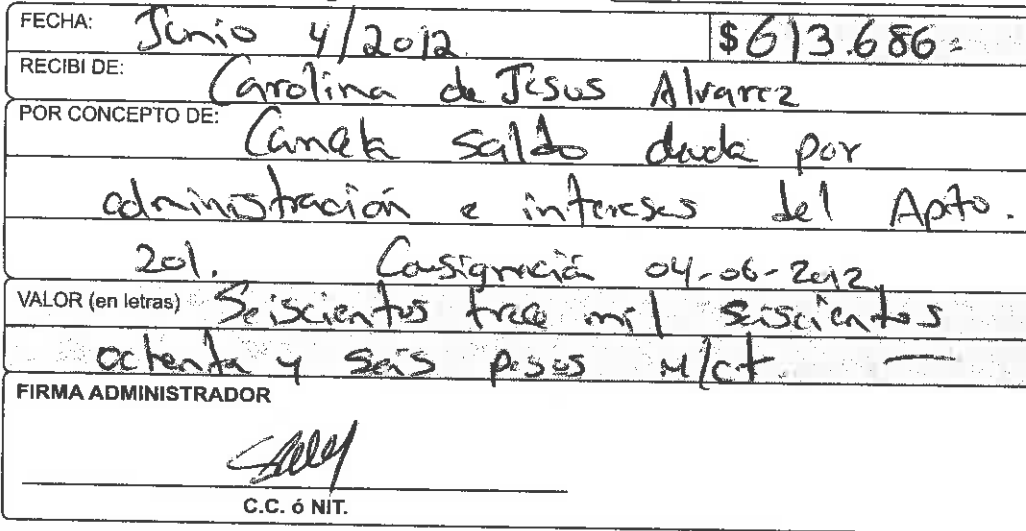 FECHA: Junio 4/2012 $613.686=
RECIBI DE: Carolina de Jesus Alvarez
POR CONCEPTO DE: Cancela saldo deuda por
administración e intereses del Apto.
201. Consignación 04-06-2012
VALOR (en letras) Seiscientos trece mil seiscientos
ochenta y seis pesos M/ct. —
FIRMA ADMINISTRADOR
C.C. ó NIT.